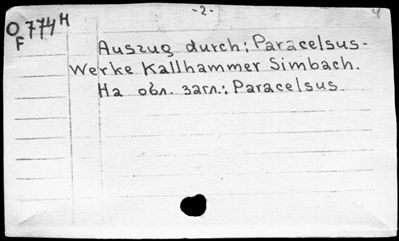 -2-
4
O 774 H
F
Auszug durch; Paracelsus-
Werke Kallhammer Simbach.
На обл. загл.: Paracelsus.